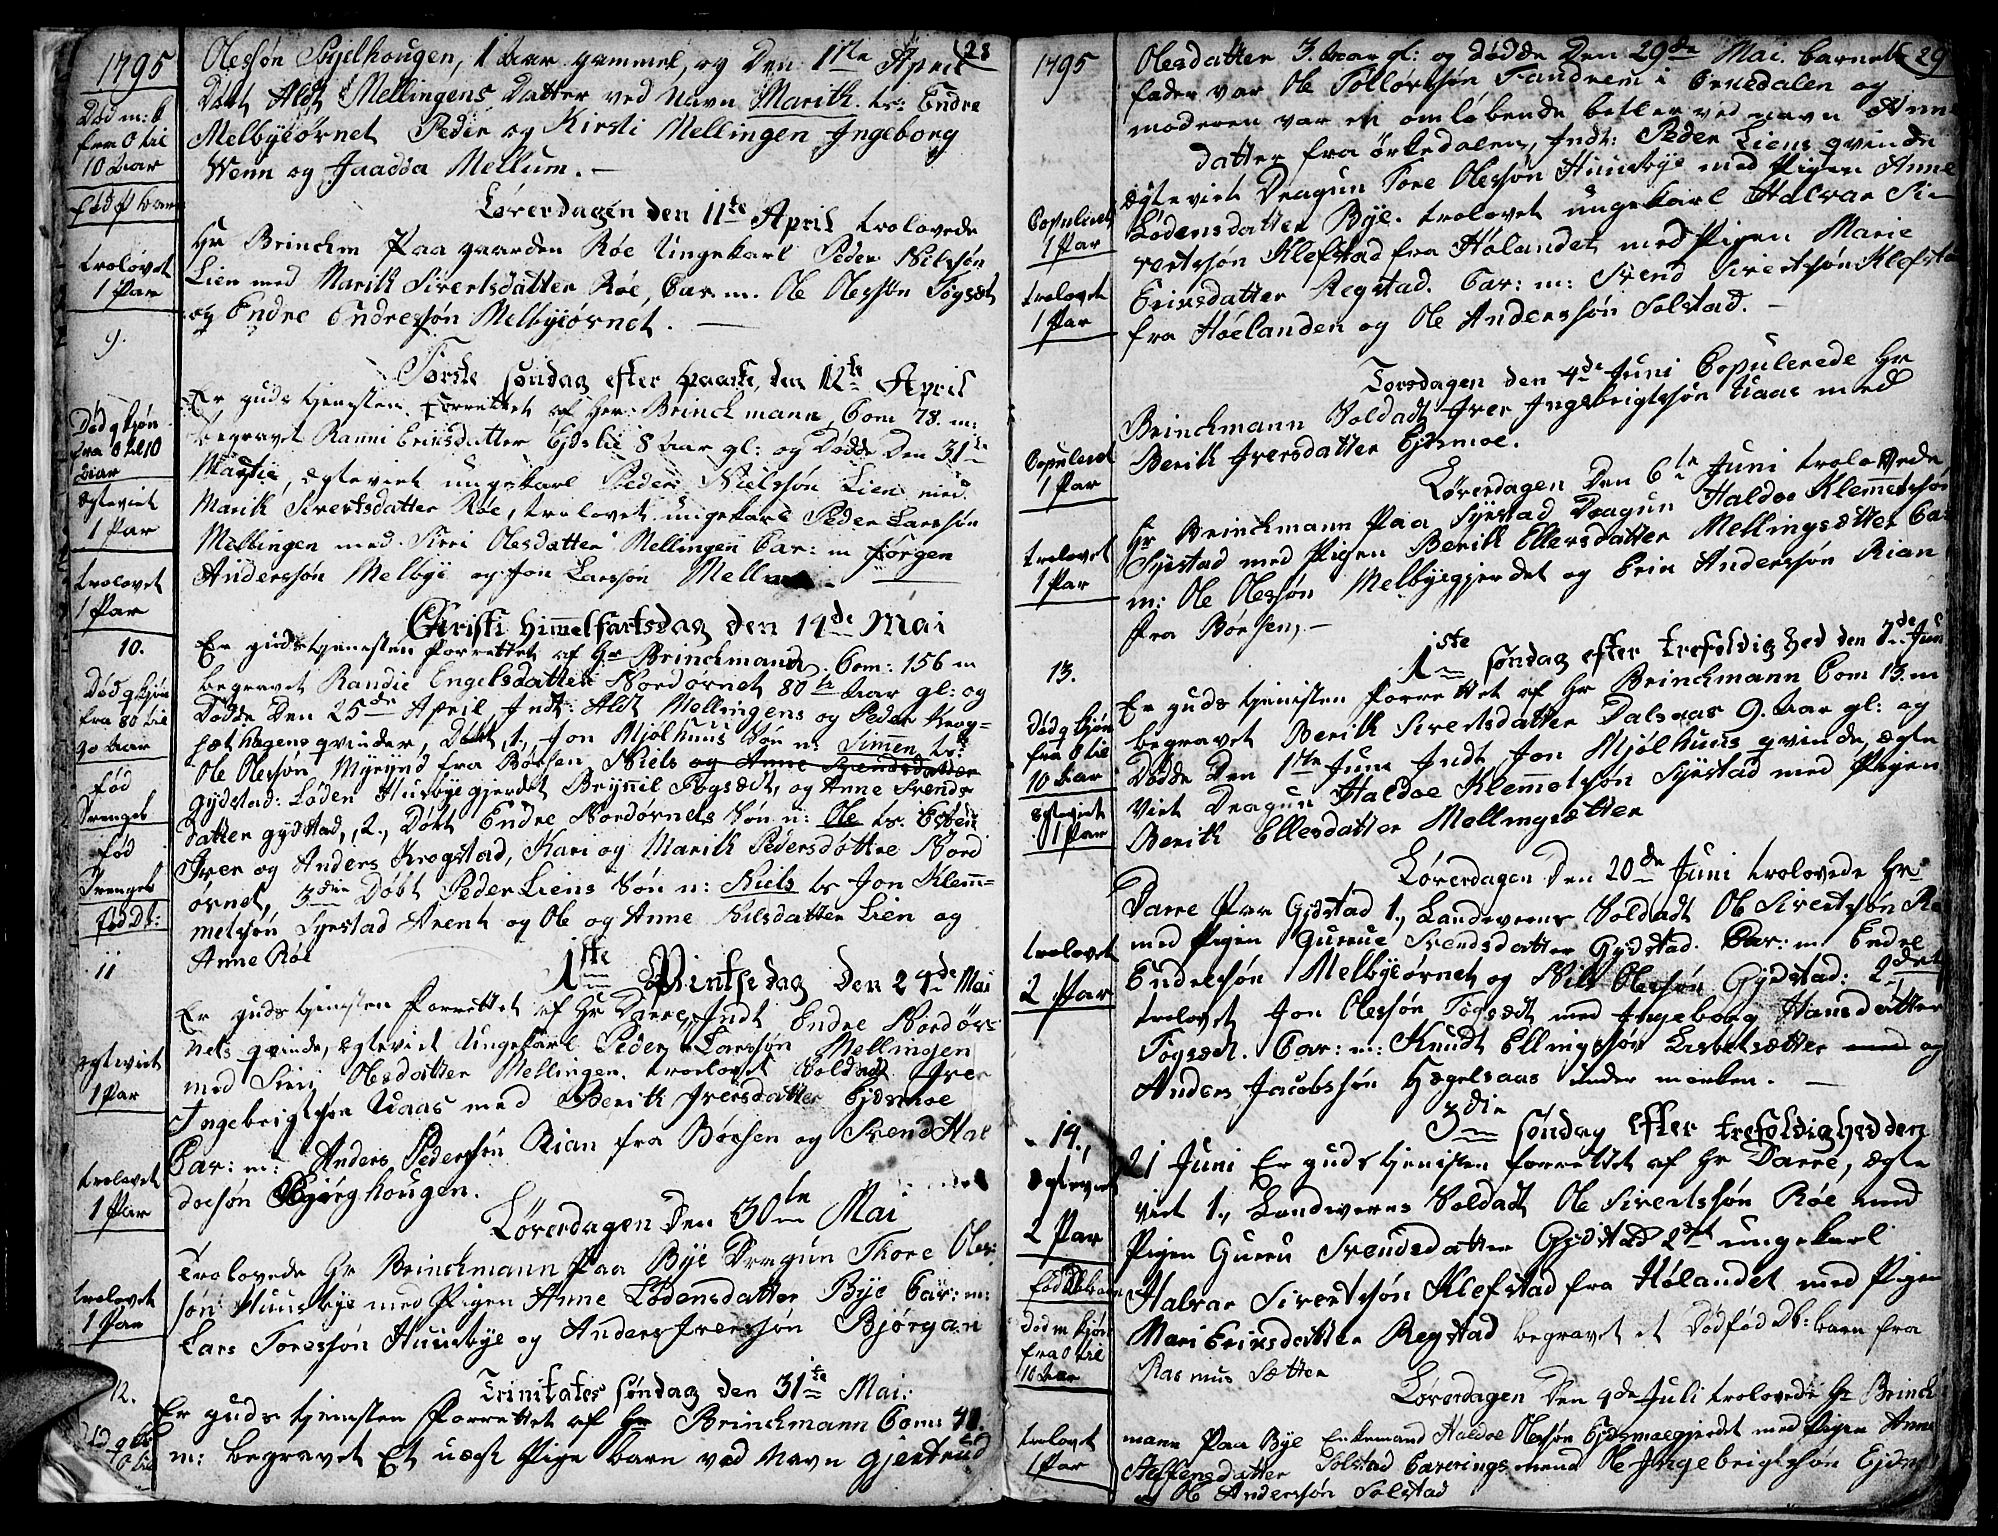 1795
Død m: k
fra 0 til
10 Aar
født
trolovet
1 Par
9.
Død qkiøn
fra 0 til 10
Aar
Egteviet
1 Par
trolovet
1 Par
10.
Død qkiøn
fra 80 til
90 Aar
fød
Drengeb
fød
Drengeb
født:
11
Egteviet
1 Par
trolovet
1 Par
trolovet
1 Par
12.
28
Olessøn 1 Aar gammel, og Den 1te April
Døbt Aldt Mellingens Datter ved Navn Marith. ts: Endre
Melbyeørnet Peder og Kirsti Mellingen Ingeborg
Wenn og Jaadda Mellum. —
Løverdagen den 11te April trolovede
Hr Brinchm paa gaarden Røe Ungekarl Peder Nilssøn
Lien med Marith Sivertsdatter Røe, Cav. m. Ole Olessøn Fogsæt
og Endre Endressøn Melbyeørnet. —
Første søndag efter Paaske, den 12te April
Er guds tjenesten forrettet af Hr: Brinckmann, Com 78. m:
begravet Ranni Erichsdatter Ejdslie 8 Aar gl: og Døde Den 31te
Martie, Egteviet ungekarl Peder Nielssøn Lien med
Marith Sivertsdatter Røe, trolovet ungekarl Peder Larssøn
Mellingen med Sirri Olesdatter Mellingen Cav: m Jørgen
Anderssøn Melbye og Jon Larssøn
Christi Himmelfartsdag den 14de Mai
Er guds tjenesten forrettet af Hr Brinckmann Com: 156 m
begravet Randie Engelsdatter Nordørnet 80te Aar gl: og
Døde Den 25de April Indt: Aldt Mellingens og Peder Krog-
sæt hagens qvinder, Døbt, 1, Jon Mjølhuus Søn n: Simen ts:
Ole Olessøn Myrynd fra Børsen Niels og Anne Svendsdatter
gydstad: Løden Husbyegjerdet Brynnil Fogsædt, og Anne Svends
datter gydstad, 2., Døbt Endre Nordørnets Søn n: Ole ts: Esben
Iver og Anders Krogstad, Kari og Marith Pedersdøttre Nord
ørnet, 3die Døbt Peder Liens Søn n: Niels ts Jon Klem-
metsøn Syrstad Arent og Ole og Anne Nilsdatter Lien og
Anne Røe
1ste Pintsedag Den 24de Mai
Er guds tjenesten forrettet af Hr Darre, Indt Endre Nordør-
nets qvinde, Egteviet Ungekarl Peder Larssøn Mellingen
med Siri Olesdatter Mellingen. trolovet Soldat Iver
Ingebrigtsøn Uaas med Berith Iversdatter Ejdsmoe
Cav: m: Anders Pederssøn Rian fra Børsen og Svend Hal
doesøn Bjørghougen.
Løverdagen Den 30te Mai
Trolovede Hr Brinckmann paa Bye Dragun Thore Oles-
søn Huusbye med Pigen Anne Lodensdatter Bye Cav: m:
Lars Toressøn Huusbye og Anders Iverssøn Bjørgan
Trinitates søndag den 31te Mai:
Er guds tjenesten forrettet af Hr Brinckmann Com: 41.
m: begravet Et uægt Pige barn ved Navn gjertrud
1795
Copuleret
1 Par
trolovet
1 Par
Copuleret
1 Par
trolovet
1 Par
13.
Død qkjøn
fra 0 til
10 Aar
Egteviet
1 Par
trolovet
2 Par
14.
Egteviet
2 Par
Død m kjøn
fra 0 til
10 Aar
trolovet
1 Par
29
Olesdatter 3. Aar gl: og døde Den 29de Mai. barnets
fader var Ole Tollofssøn Fandrem i Orkedalen og
moderen var en omløbende betler ved navn Anne
datter fra Ørkedalen, Indt: Peder Liens qvinde
Egteviet Dragun Tore Olessøn Huusbye med Pigen Anne
Lodensdatter Bye. trolovet ungekarl Halvar Si-
vertssøn Klefstad fra Hølandet med Pigen Marie
Erixsdatter Regstad. Cav: m: Svend Sivertsøn Klefsta
fra Høelanden og Ole Anderssøn Solstad. —
Torsdagen den 4de Juni Copulerede Hr
Brinckmann Soldadt Iver Ingebrigtssøn Uaas med
Berith Iversdatter Ejdsmoe.
Løverdagen Den 6te Juni trolovede
Hr Brinckmann paa Syrstad Dragun Haldoe Klemmetssøn
Syrstad med Pigen Berith Ellefsdatter Mellingsætter Cav
m: Ole Olessøn Melbyegjerdet og Erik Anderssøn Rian
fra Børsen, —
1ste søndag efter trefoldighed den 7de Juni
Er guds tjenisten forrettet af Hr Brinckmann Com 13. m
begravet Berith Sivertsdatter Dalsaas 9. Aar gl: og
Døde Den 1te Juni Indt Jon Mjølhuus qvinde, Egte
Viet Dragun Haldoe Klemmetsøn Syrstad med Pigen
Berith Ellefsdatter Mellingsætter
Løverdagen Den 20de Juni trolovede Hr
Darre Paa Gydstad 1., Landverns Soldadt Ole Sivertsøn Rø
med Pigen Gurrue Svendsdatter Gydstad. Cav: m: Endre
Endressøn Melbyeørnet og Nils Olessøn Gydstad: 2det
trolovet Jon Olessøn Fogsædt med Ingeborg Hansdatter
Fogsædt. Cav: m: Knudt Ellingssøn Lisbetsætter med og
Anders Jacobssøn Hægelsaas under marken. —
3die søndag efter trefoldighed den
21 Juni Er guds tjenisten forrettet af Hr Darre, Egte
viet 1., Landverns Soldadt Ole Sivertssøn Røe med
Pigen Guru Svendsdatter Gydstad 2det ungekarl
Halvar Sivertsøn Klefstad fra Hølandet med Pigen
Mari Erixsdatter Regstad begravet et Dødfød Db: barn fra
Rasmus Sætter
Løverdagen Den 4de Juli trolovede Hr Brinck
mann paa Bye Enkemand Haldoe Olessøn Ejdsmoegjerdet med Pigen Anne
Steffensdatter Solstad Caverings mend Ole Ingebrigtsøn Ejdsm
Ole Anderssøn Solstad